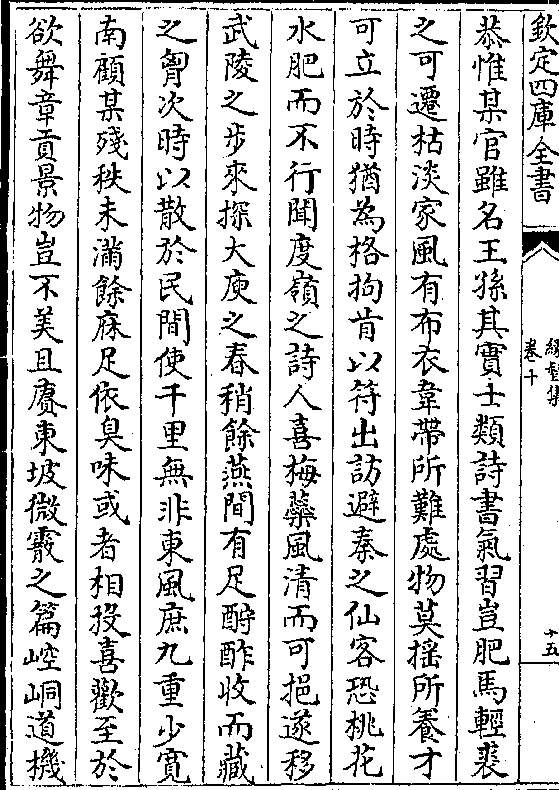 欽定四庫全書
卷十
十五
恭惟某官雖名王孫其實士類詩書氣習豈肥馬輕裘
之可遷枯淡家風有布衣韋帶所難處物莫揺所養才
可立於時猶為格拘肯以符出訪避秦之仙客恐桃花
水肥而不行聞度嶺之詩人喜梅蘂風清而可挹遂移
武陵之步來探大庾之春稍餘燕間有足酧酢收而藏
之胷次時以散於民間使千里無非東風庶九重少寛
南顧某殘秩未滿餘庥足依臭味或者相投喜歡至於
欲舞章貢景物豈不美且賡東坡微霰之篇崆峒道機